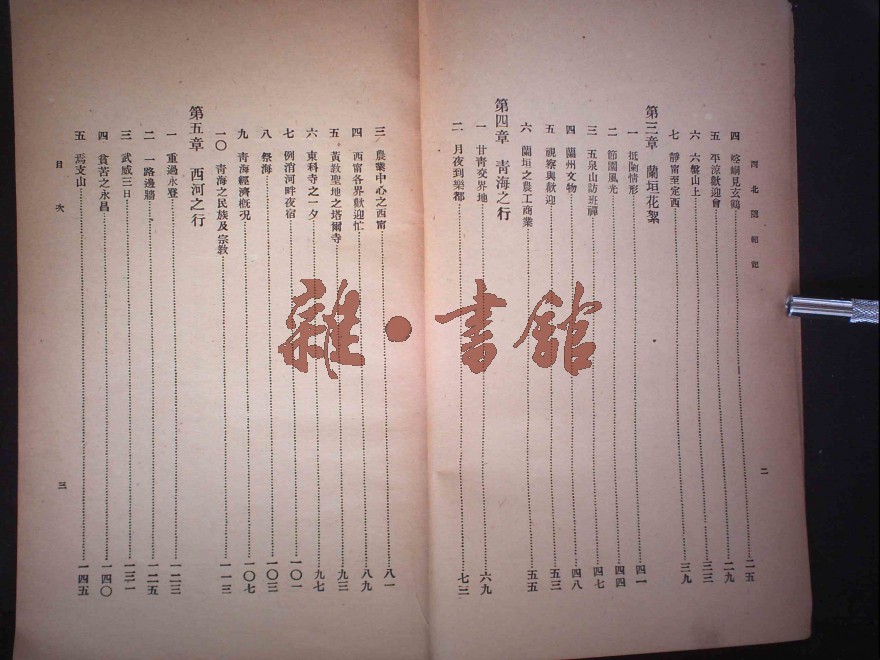 西北隨軺記
四 崆峒見玄鶴 二五
五 平涼歡迎會 二九
六 六盤山上 三三
七 靜甯至定西 三九
第三章 蘭垣花絮
一 抵蘭情形 四一
二 節園風光 四四
三 五泉山訪班禪 四七
四 蘭州文物 四八
五 視察與歡迎 五三
六 蘭垣之農工商業 五五
第四章 青海之行
一 甘青交界地 六九
二 月夜到樂都 七三
二
三 農業中心之西甯 八一
四 西甯各界歡迎忙 八九
五 黃教聖地之塔爾寺 九三
六 東科寺之一夕 九七
七 倒淌河畔夜宿 一〇一
八 祭海 一〇三
九 青海經濟概況 一〇七
一〇 青海之民族及宗教 一一三
第五章 西河之行
一 重過永登 一二三
二 一路邊牆 一二五
三 武威三日 一三一
四 貧苦之永昌 一四〇
五 焉支山 一四五
目次
三
雜·書館